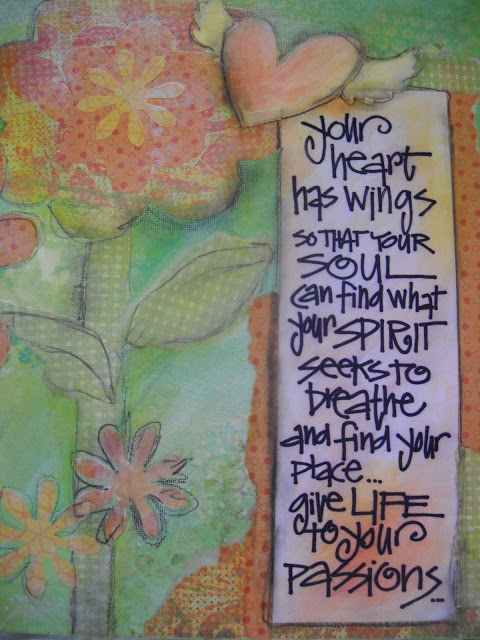 your
heart
has wings
so that your
SOUL
can find what
your SPIRIT
seeks to
breathe
and find your
place...
give LIFE
to your
passions...